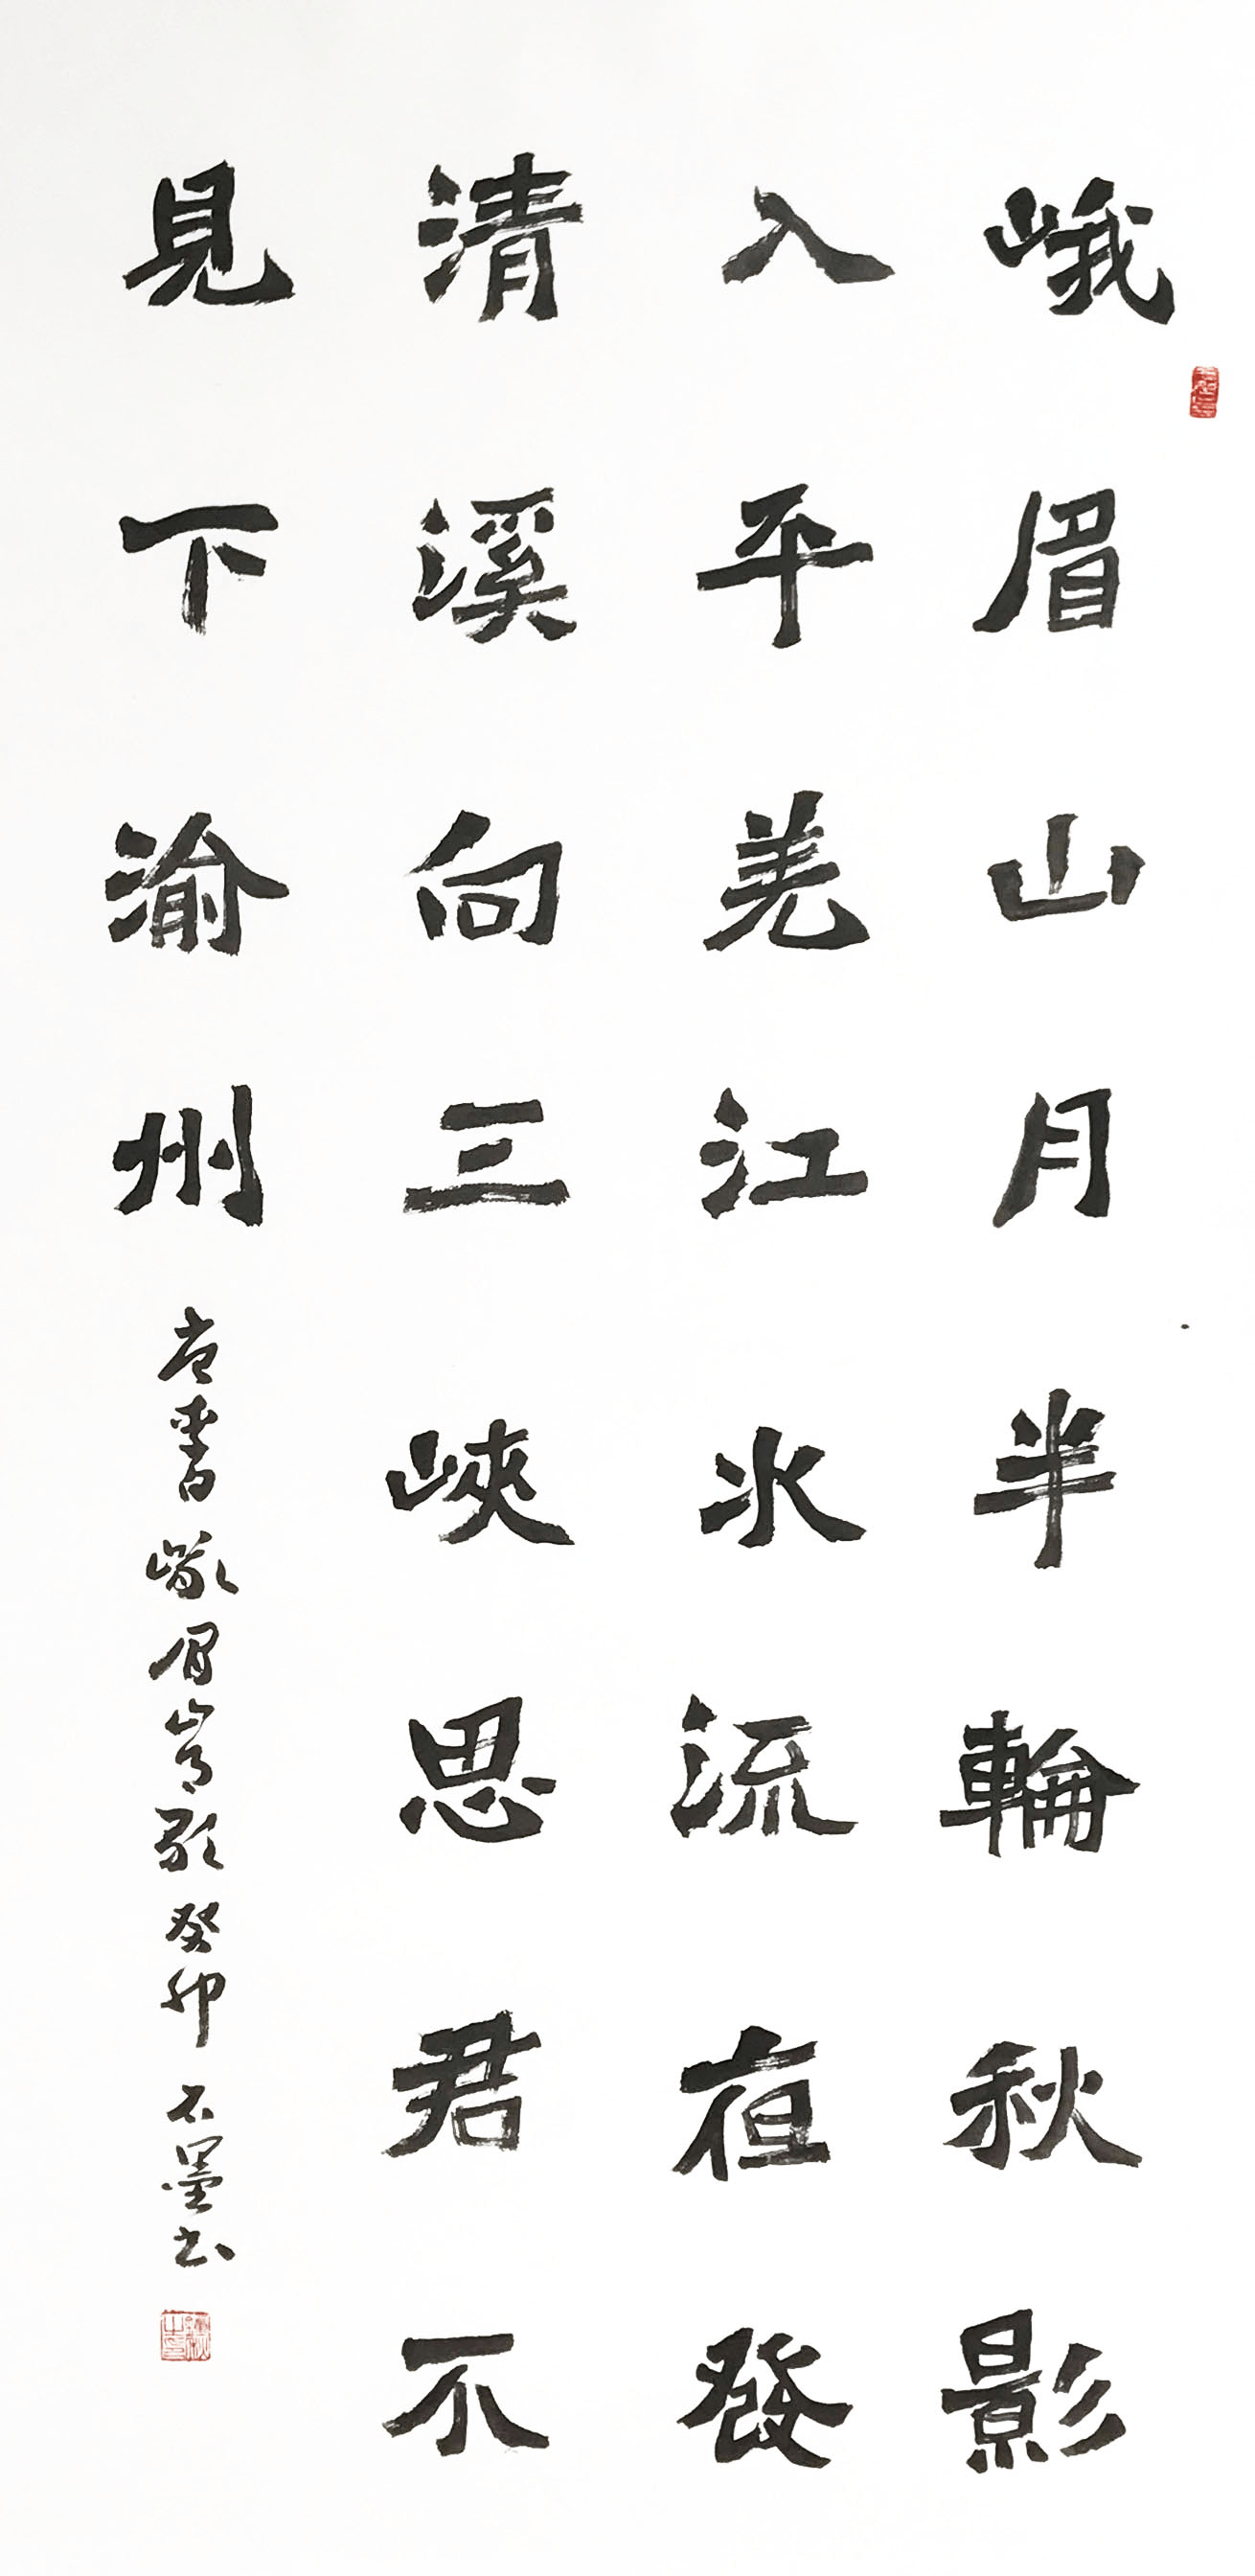 峨眉山月半輪秋影
入平羌江水流夜發
清溪向三峽思君不
見下渝州
李白峨眉山月歌癸卯石墨书